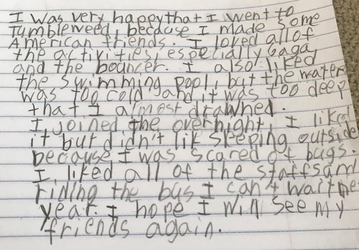 I was very happy that I went to
Tumbleweed, because I made some
American friends. I loked all of
the activities, especially gaga
and the bouncer. I also liked
the swimming pool, but the water
was too cold and it was too deep
that I almost drawned.
I joined the overnight. I liked
it but didn't lik sleeping outside
because I was scared of bugs.
I liked all of the staffs and
riding the bus I can't wait
year. I hope I will see my
friends again.